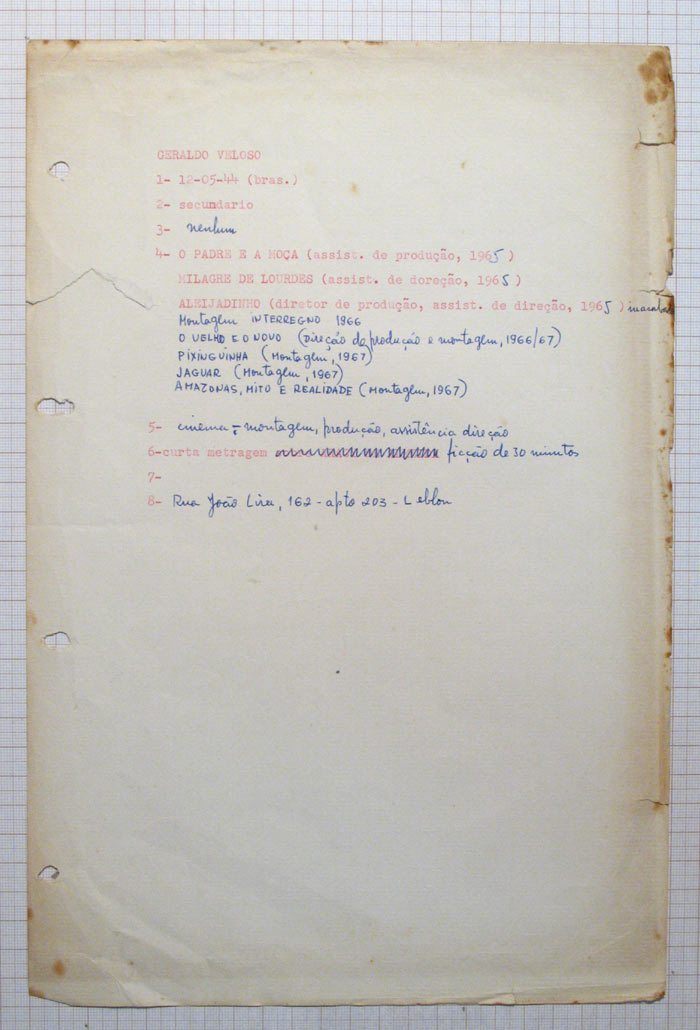 GERALDO VELOSO
1- 12-05-44 (bras.)
2- secundario
3- nenhum
4- O PADRE E A MOÇA (assist. de produção, 1965 )
MILAGRE DE LOURDES (assist. de doreção, 1965 )
ALEIJADINHO (diretor de produção, assist. de direção, 1965 )
Montagem INTERREGNO 1966
O VELHO E O NOVO (Direção de produção e montagem, 1966/67)
PIXINGUINHA (Montagem, 1967)
JAGUAR (Montagem, 1967)
AMAZONAS, MITO E REALIDADE (Montagem, 1967)
5- cinema - montagem, produção, assistência direção
6-curta metragem ficção de 30 minutos
7-
8- Rua João Lira, 162 - apto 203 - Leblon